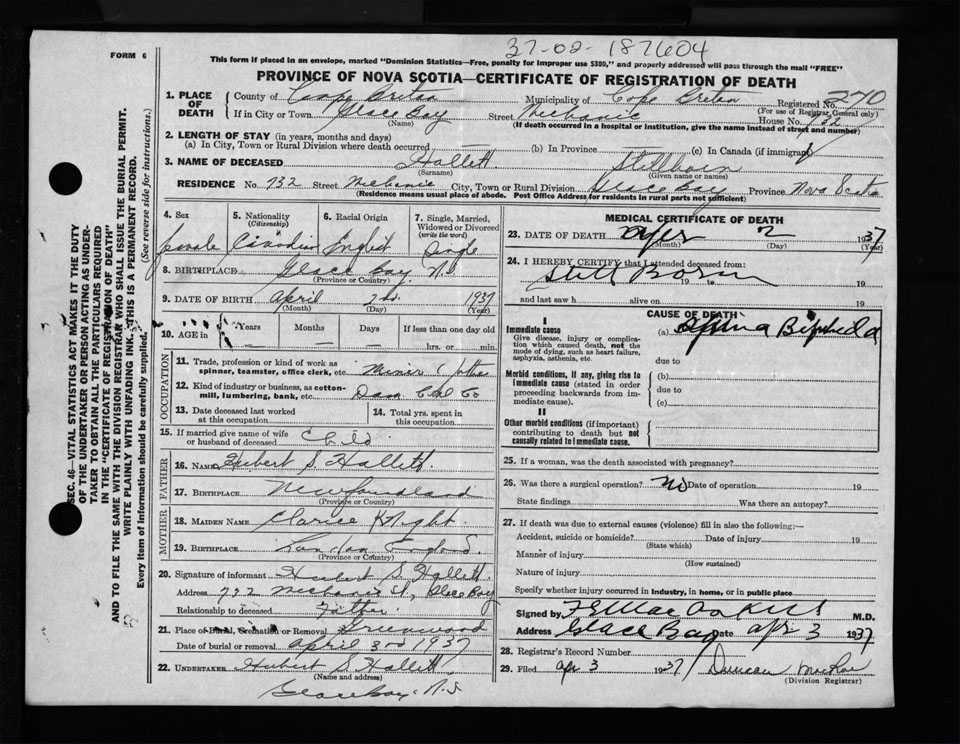 FORM 6
37-02-187604
This form if placed in an envelope, marked "Dominion Statistics—Free, penalty for improper use $300," and properly addressed will pass through the mail "FREE"
PROVINCE OF NOVA SCOTIA—CERTIFICATE OF REGISTRATION OF DEATH
SEC. 46—VITAL STATISTICS ACT MAKES IT THE DUTY
OF THE UNDERTAKER OR PERSON ACTING AS UNDER-
TAKER TO OBTAIN ALL THE PARTICULARS REQUIRED
IN THE "CERTIFICATE OF REGISTRATION OF DEATH"
AND TO FILE THE SAME WITH THE DIVISION REGISTRAR WHO SHALL ISSUE THE BURIAL PERMIT.
WRITE PLAINLY WITH UNFADING INK. THIS IS A PERMANENT RECORD.
Every item of Information should be carefully supplied. (See reverse side for instructions.)
1. PLACE OF DEATH County of Cape Breton Municipality of Cape Breton Registered No. 270
(For use of Registrar General only)
If in City or Town Glace Bay (Name) Street Mechanic House No. 732
(If death occurred in a hospital or institution, give the name instead of street and number)
2. LENGTH OF STAY (in years, months and days)
(a) In City, Town or Rural Division where death occurred (b) In Province (c) In Canada (if immigrant)
3. NAME OF DECEASED Hallett Stillborn
(Surname) (Given name or names)
RESIDENCE No. 732 Street Mechanic City, Town or Rural Division Glace Bay Province Nova Scotia
(Residence means usual place of abode. Post Office Address for residents in rural parts not sufficient)
4. Sex female
5. Nationality (Citizenship) Canadian
6. Racial Origin English
7. Single, Married, Widowed or Divorced (write the word) Single
8. BIRTHPLACE Glace Bay N.S
(Province or Country)
9. DATE OF BIRTH April 2nd 1937
(Month) (Day) (Year)
10. AGE in Years Months Days If less than one day old
— — — hrs. or min.
OCCUPATION
11. Trade, profession or kind of work as spinner, teamster, office clerk, etc. Miner
12. Kind of industry or business, as cotton-mill, lumbering, bank, etc. Dom Coal Co
13. Date deceased last worked at this occupation
14. Total yrs. spent in this occupation
15. If married give name of wife or husband of deceased Child
FATHER
16. NAME Hubert S. Hallett.
17. BIRTHPLACE Newfoundland
(Province or Country)
MOTHER
18. MAIDEN NAME Clarice Knight.
19. BIRTHPLACE London England.
(Province or Country)
20. Signature of informant Hubert S. Hallett.
Address 732 Mechanic St, Glace Bay
Relationship to deceased Father.
21. Place of Burial, Cremation or Removal Greenwood
Date of burial or removal april 3rd 1937
22. UNDERTAKER Hubert S Hallett
(Name and address)
Glace Bay. N.S
MEDICAL CERTIFICATE OF DEATH
23. DATE OF DEATH 2 1937
(Month) (Day) (Year)
24. I HEREBY CERTIFY that I attended deceased from:
Still Born 19 to 19
and last saw h alive on 19
CAUSE OF DEATH
I
Immediate cause (a) Spina Bifida
Give disease, injury or complica-
tion which caused death, not the
mode of dying, such as heart failure,
asphyxia, asthenia, etc. due to
Morbid conditions, if any, giving rise to (b)
immediate cause (stated in order due to
proceeding backwards from im-
mediate cause). (c)
II
Other morbid conditions (if important)
contributing to death but not
causally related to immediate cause.
25. If a woman, was the death associated with pregnancy?
26. Was there a surgical operation? No Date of operation 19
State findings Was there an autopsy?
27. If death was due to external causes (violence) fill in also the following:—
Accident, suicide or homicide? Date of injury 19
(State which)
Manner of injury
(How sustained)
Nature of injury
Specify whether injury occurred in industry, in home, or in public place
Signed by M.D.
Address Glace Bay Date Apr 3 1937
28. Registrar's Record Number
29. Filed Apr 3 1937 Duncan MacRae
(Division Registrar)